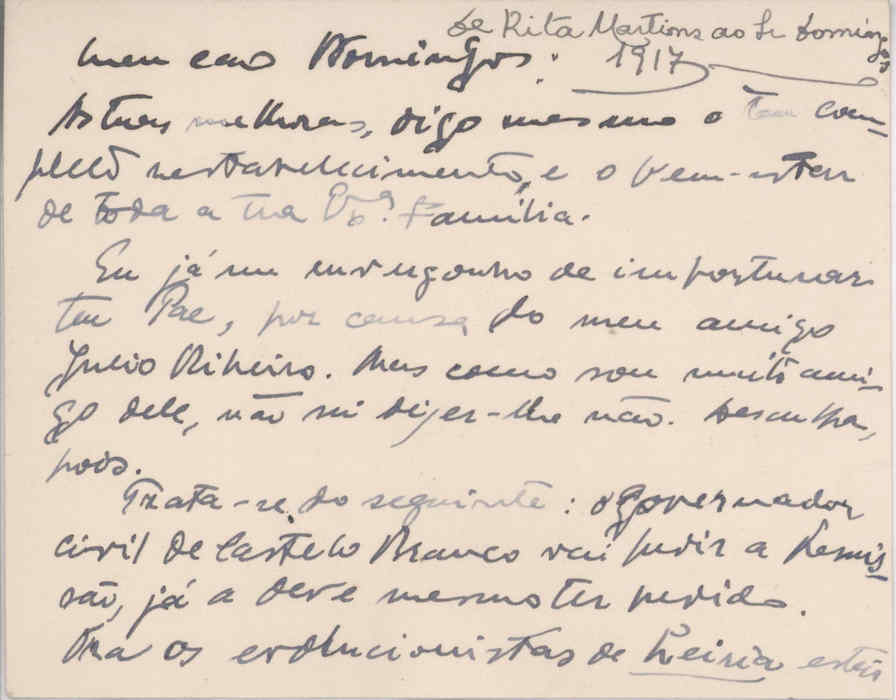 de Rita Martins ao Sr Domingos
1917
Meu caro Domingos:
As tuas melhoras, digo mesmo o teu com-
pleto restabelecimento, e o bem-estar
de toda a tua Ex.ª Família.
Eu já me envergonho de importunar
teu Pae, por causa do meu amigo
Julio Ribeiro. Mas como sou muito ami-
go dele, não sei dizer-lhe não. Desculpa,
pois.
Trata-se do seguinte: o Governador
civil de Castelo Branco vai pedir a demis-
são, já a deve mesmo ter pedido.
Ora os evolucionistas de Leiria